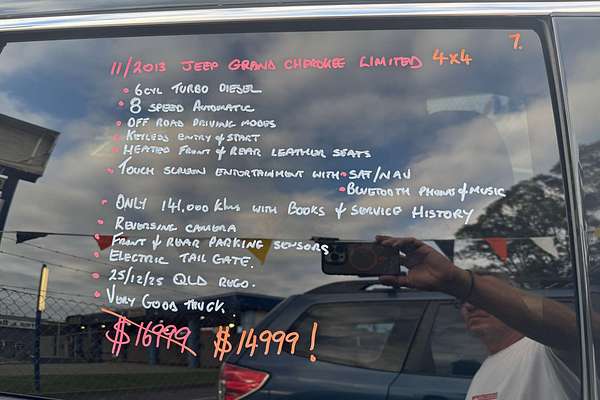 11/2013 JEEP GRAND CHEROKEE LIMITED 4x4
7.
• 6 CYL TURBO DIESEL
• 8 SPEED AUTOMATIC
• OFF ROAD DRIVING MODES
• KEYLESS ENTRY & START
• HEATED FRONT & REAR LEATHER SEATS
• TOUCH SCREEN ENTERTAINMENT WITH • SAT/NAV
• BLUETOOTH PHONE & MUSIC
• ONLY 141,000 Klms WITH BOOKS & SERVICE HISTORY
• REVERSING CAMERA
• FRONT & REAR PARKING SENSORS
• ELECTRIC TAIL GATE.
• 25/12/25 QLD REGO.
• VERY GOOD TRUCK.
$16999 $14999!